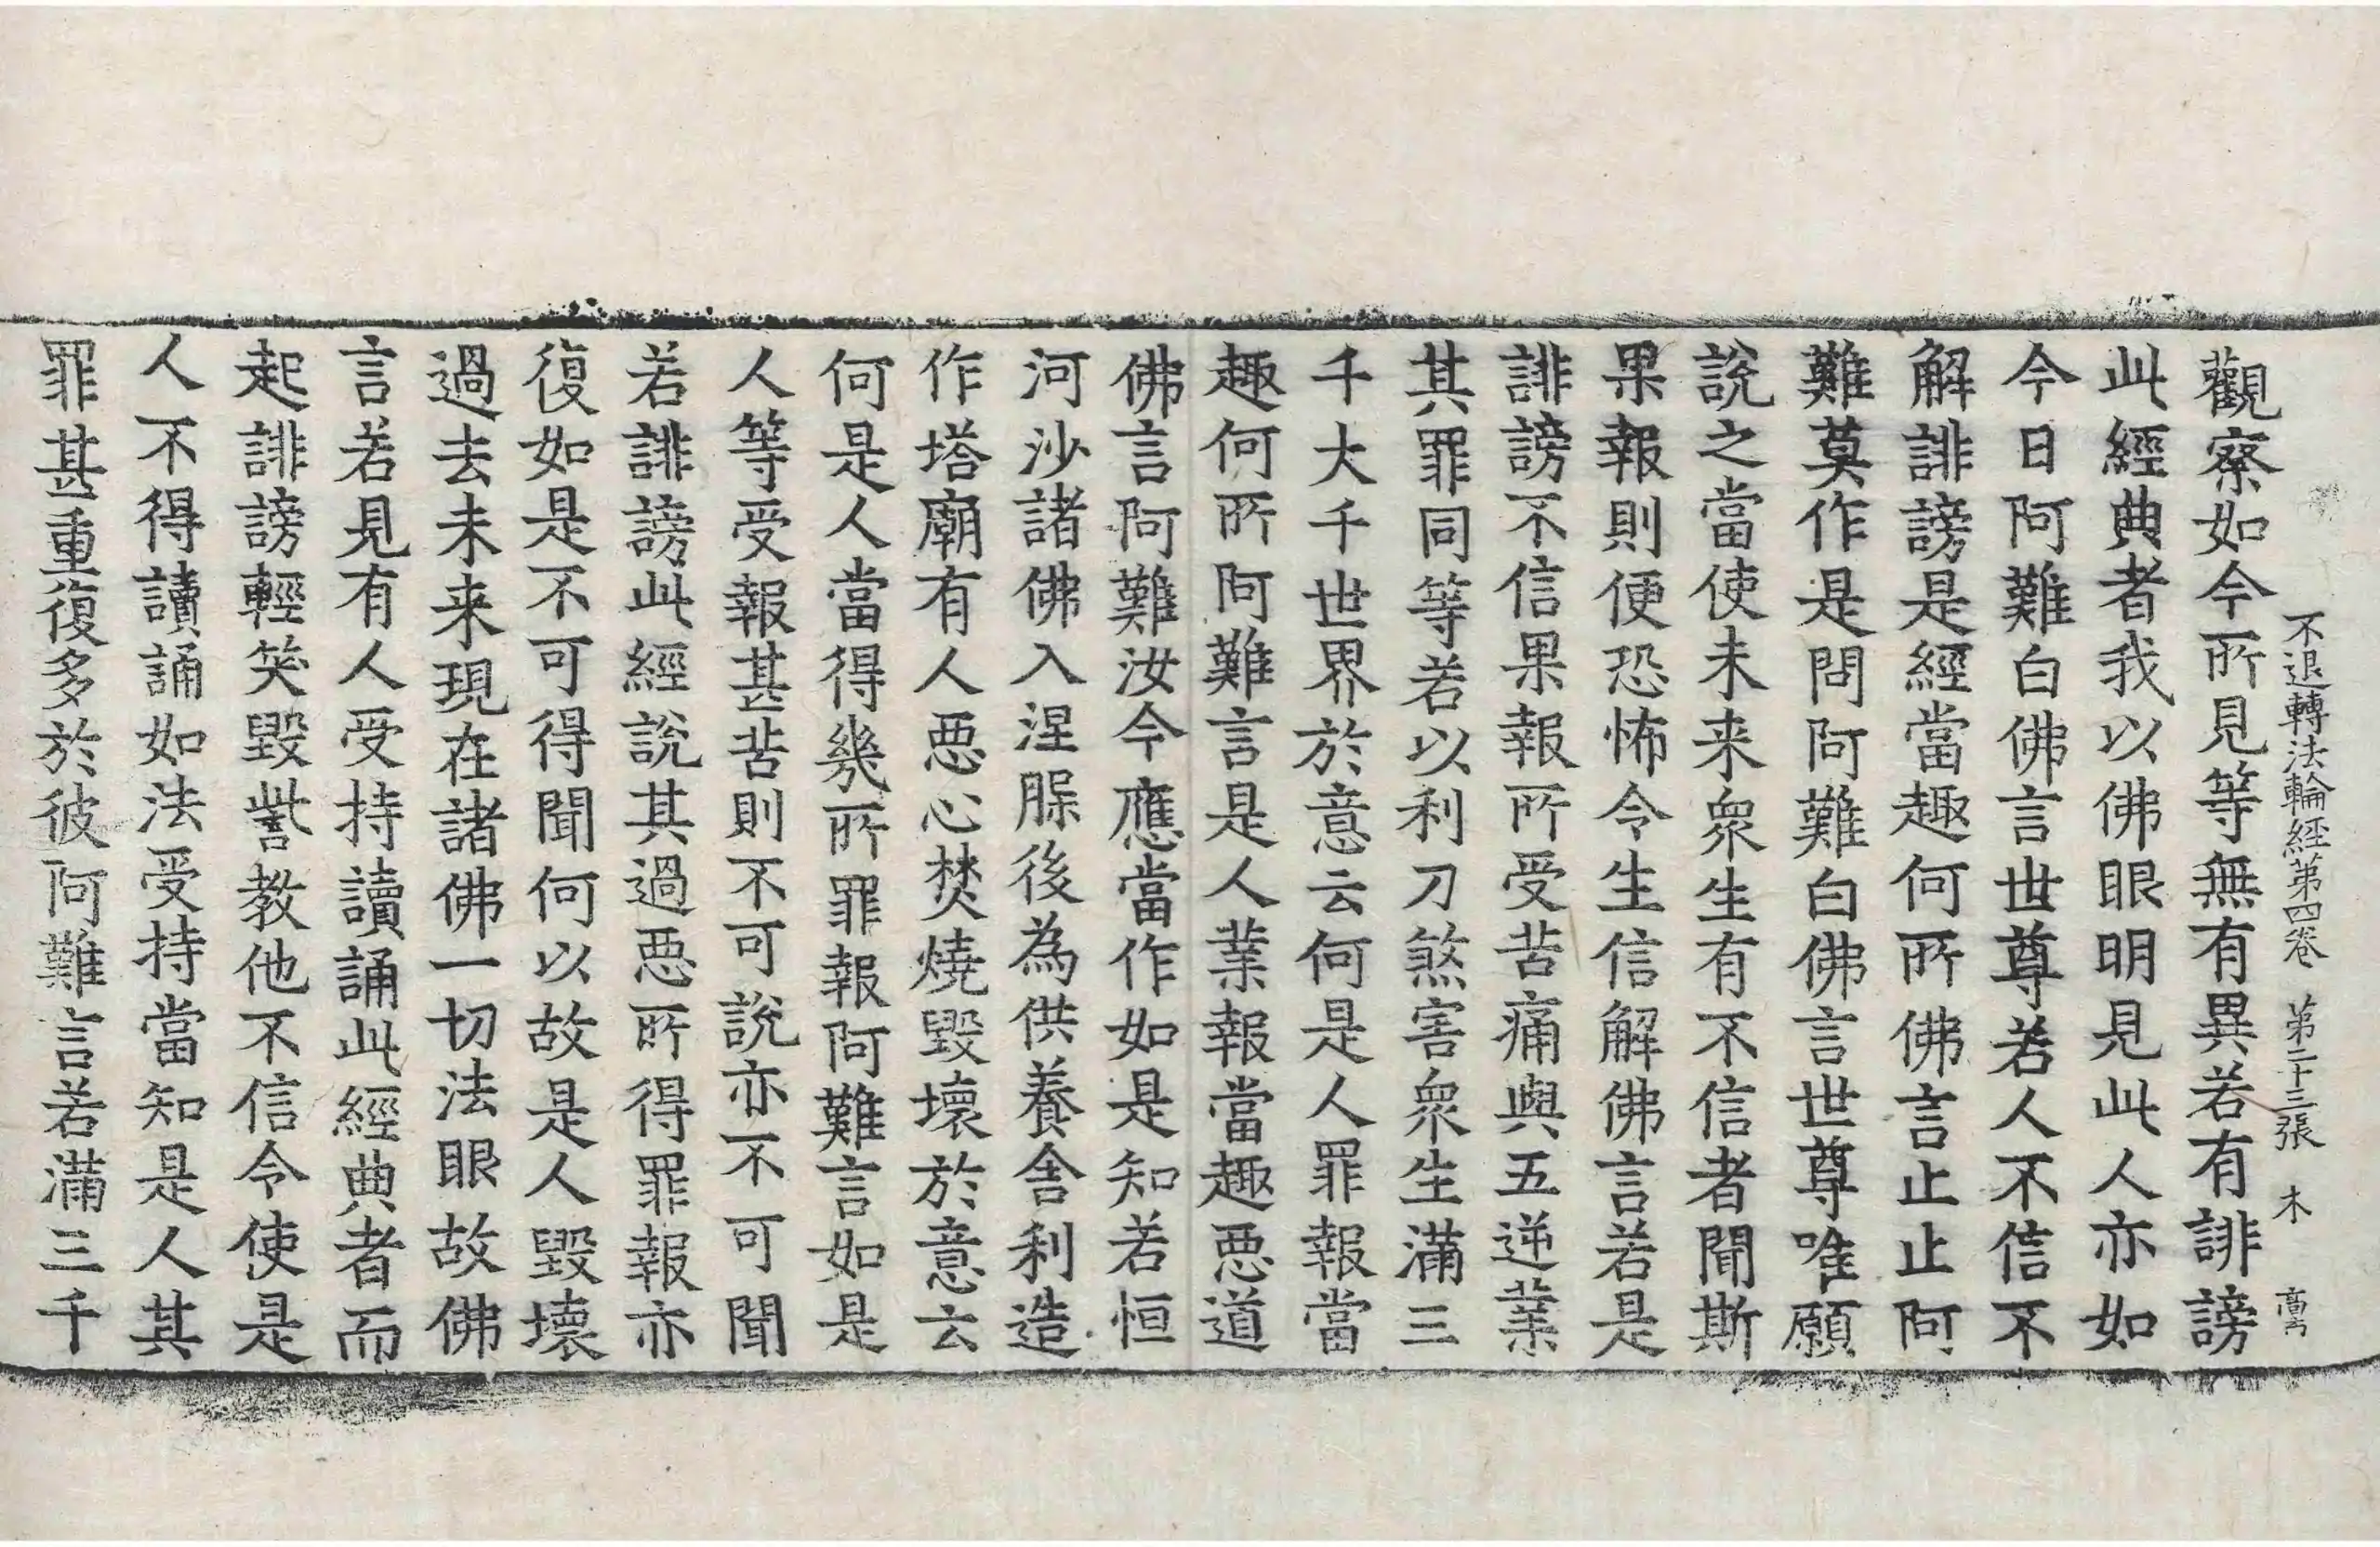 不退轉法輪經第四卷 第二十三張 木
觀察如今所見等無有異若有誹謗
此經典者我以佛眼明見此人亦如
今日阿難白佛言世尊若人不信不
解誹謗是經當趣何所佛言止止阿
難莫作是問阿難白佛言世尊唯願
說之當使未来衆生有不信者聞斯
果報則便恐怖令生信解佛言若是
誹謗不信果報所受苦痛與五逆業
其罪同等若以利刀煞害衆生滿三
千大千世界於意云何是人罪報當
趣何所阿難言是人業報當趣惡道
佛言阿難汝今應當作如是知若恒
河沙諸佛入涅脲後為供養舍利造
作塔廟有人惡心焚燒毀壞於意云
何是人當得幾所罪報阿難言如是
人等受報甚苦則不可說亦不可聞
若誹謗此經說其過惡所得罪報亦
復如是不可得聞何以故是人毀壞
過去未来現在諸佛一切法眼故佛
言若見有人受持讀誦此經典者而
起誹謗輕笑毀訾教他不信令使是
人不得讀誦如法受持當知是人其
罪甚重復多於彼阿難言若滿三千